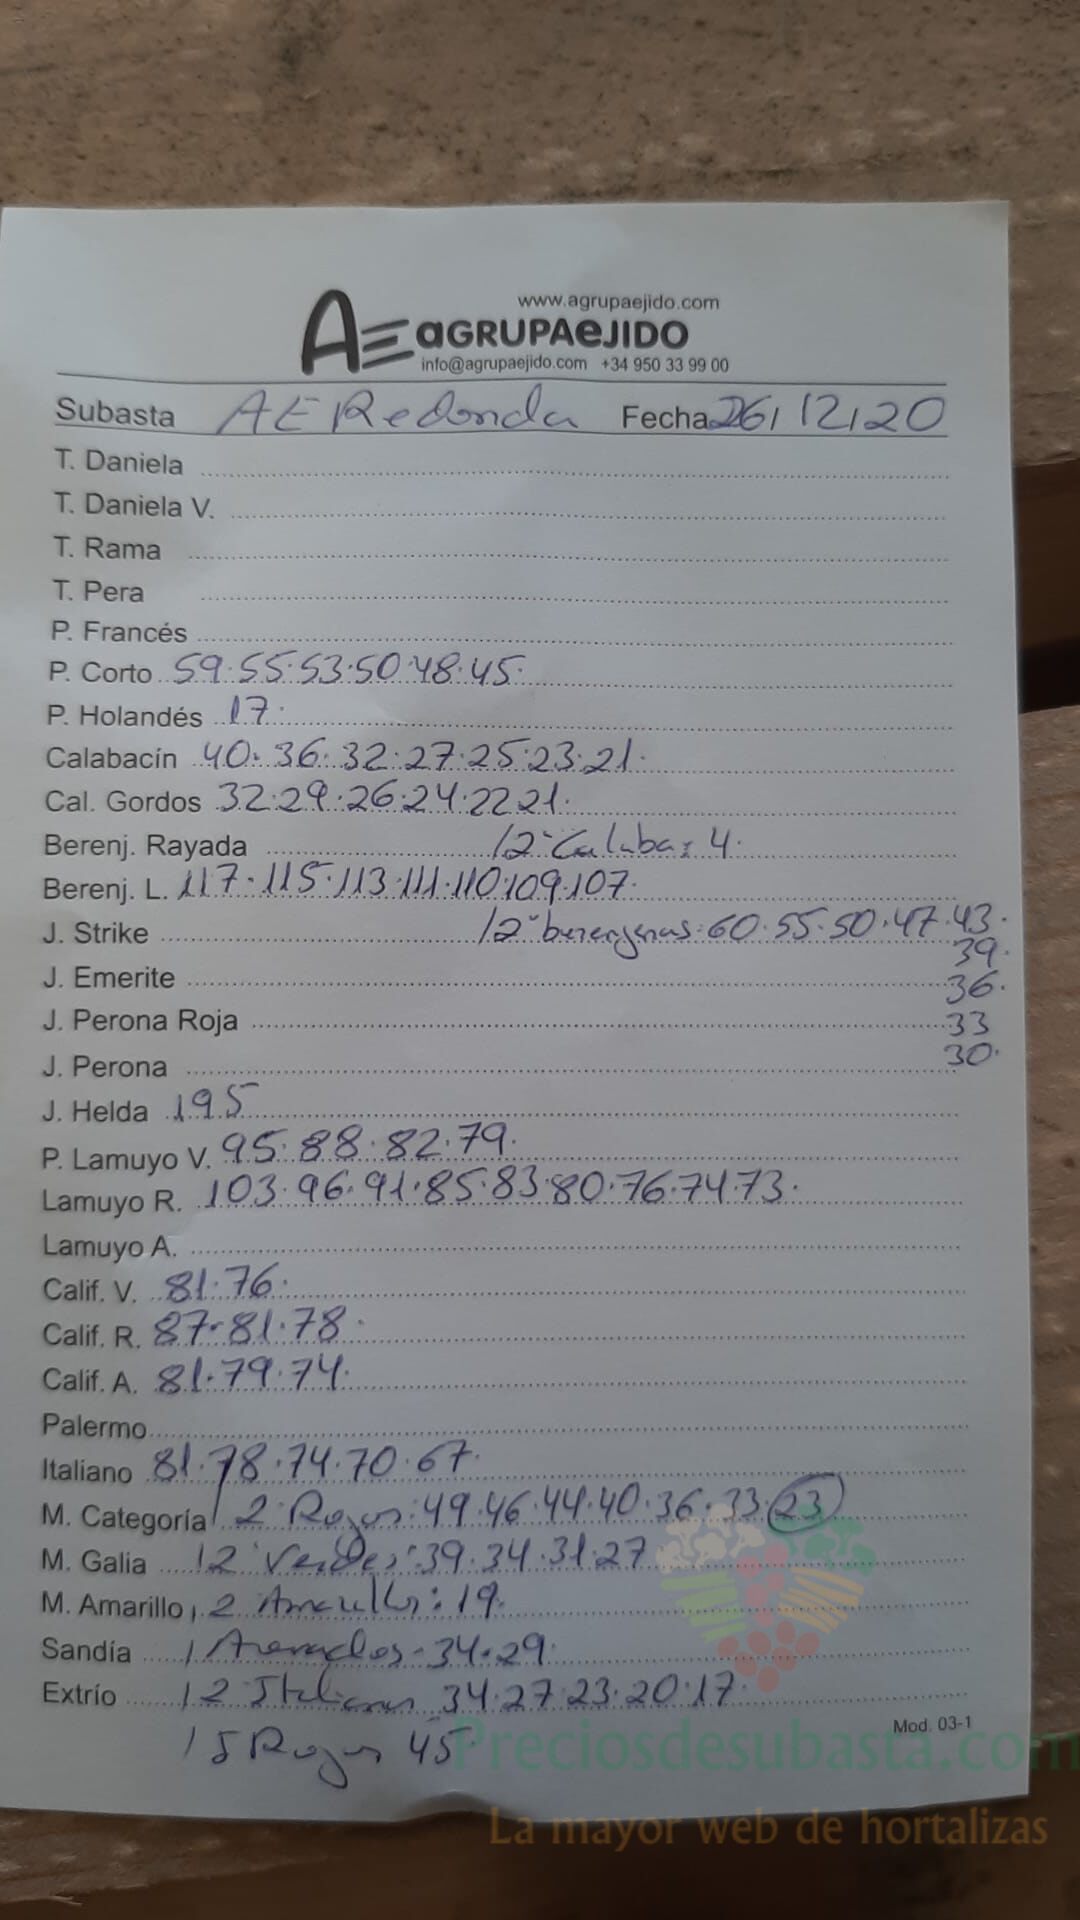 www.agrupaejido.com
AE aGRUPAeJIDO
info@agrupaejido.com +34 950 33 99 00
Subasta AE Redonda Fecha 26/12/20
T. Daniela
T. Daniela V.
T. Rama
T. Pera
P. Francés
P. Corto 59.55.53.50.48.45.
P. Holandés 17.
Calabacín 40.36.32.27.25.23.21.
Cal. Gordos 32.29.26.24.22.21.
Berenj. Rayada /2ª Calaba: 4.
Berenj. L. 117.115.113.111.110.109.107.
J. Strike /2ª berenjenas: 60.55.50.47.43.
39.
J. Emerite 36.
J. Perona Roja 33
J. Perona 30.
J. Helda 195
P. Lamuyo V. 95.88.82.79.
Lamuyo R. 103.96.91.85.83.80.76.74.73.
Lamuyo A.
Calif. V. 81.76.
Calif. R. 87.81.78.
Calif. A. 81.79.74.
Palermo
Italiano 81.78.74.70.67.
M. Categoría / 2ª Rojos: 49.46.44.40.36.33.23
M. Galia /2ª Verdes: 39.34.31.27
M. Amarillo /2 Amarillos: 19.
Sandía / 34.29.
Extrío /2 Italianos 34.27.23.20.17.
Mod. 03-1
/ 5 Rojos 45.
Preciosdesubasta.com
La mayor web de hortalizas